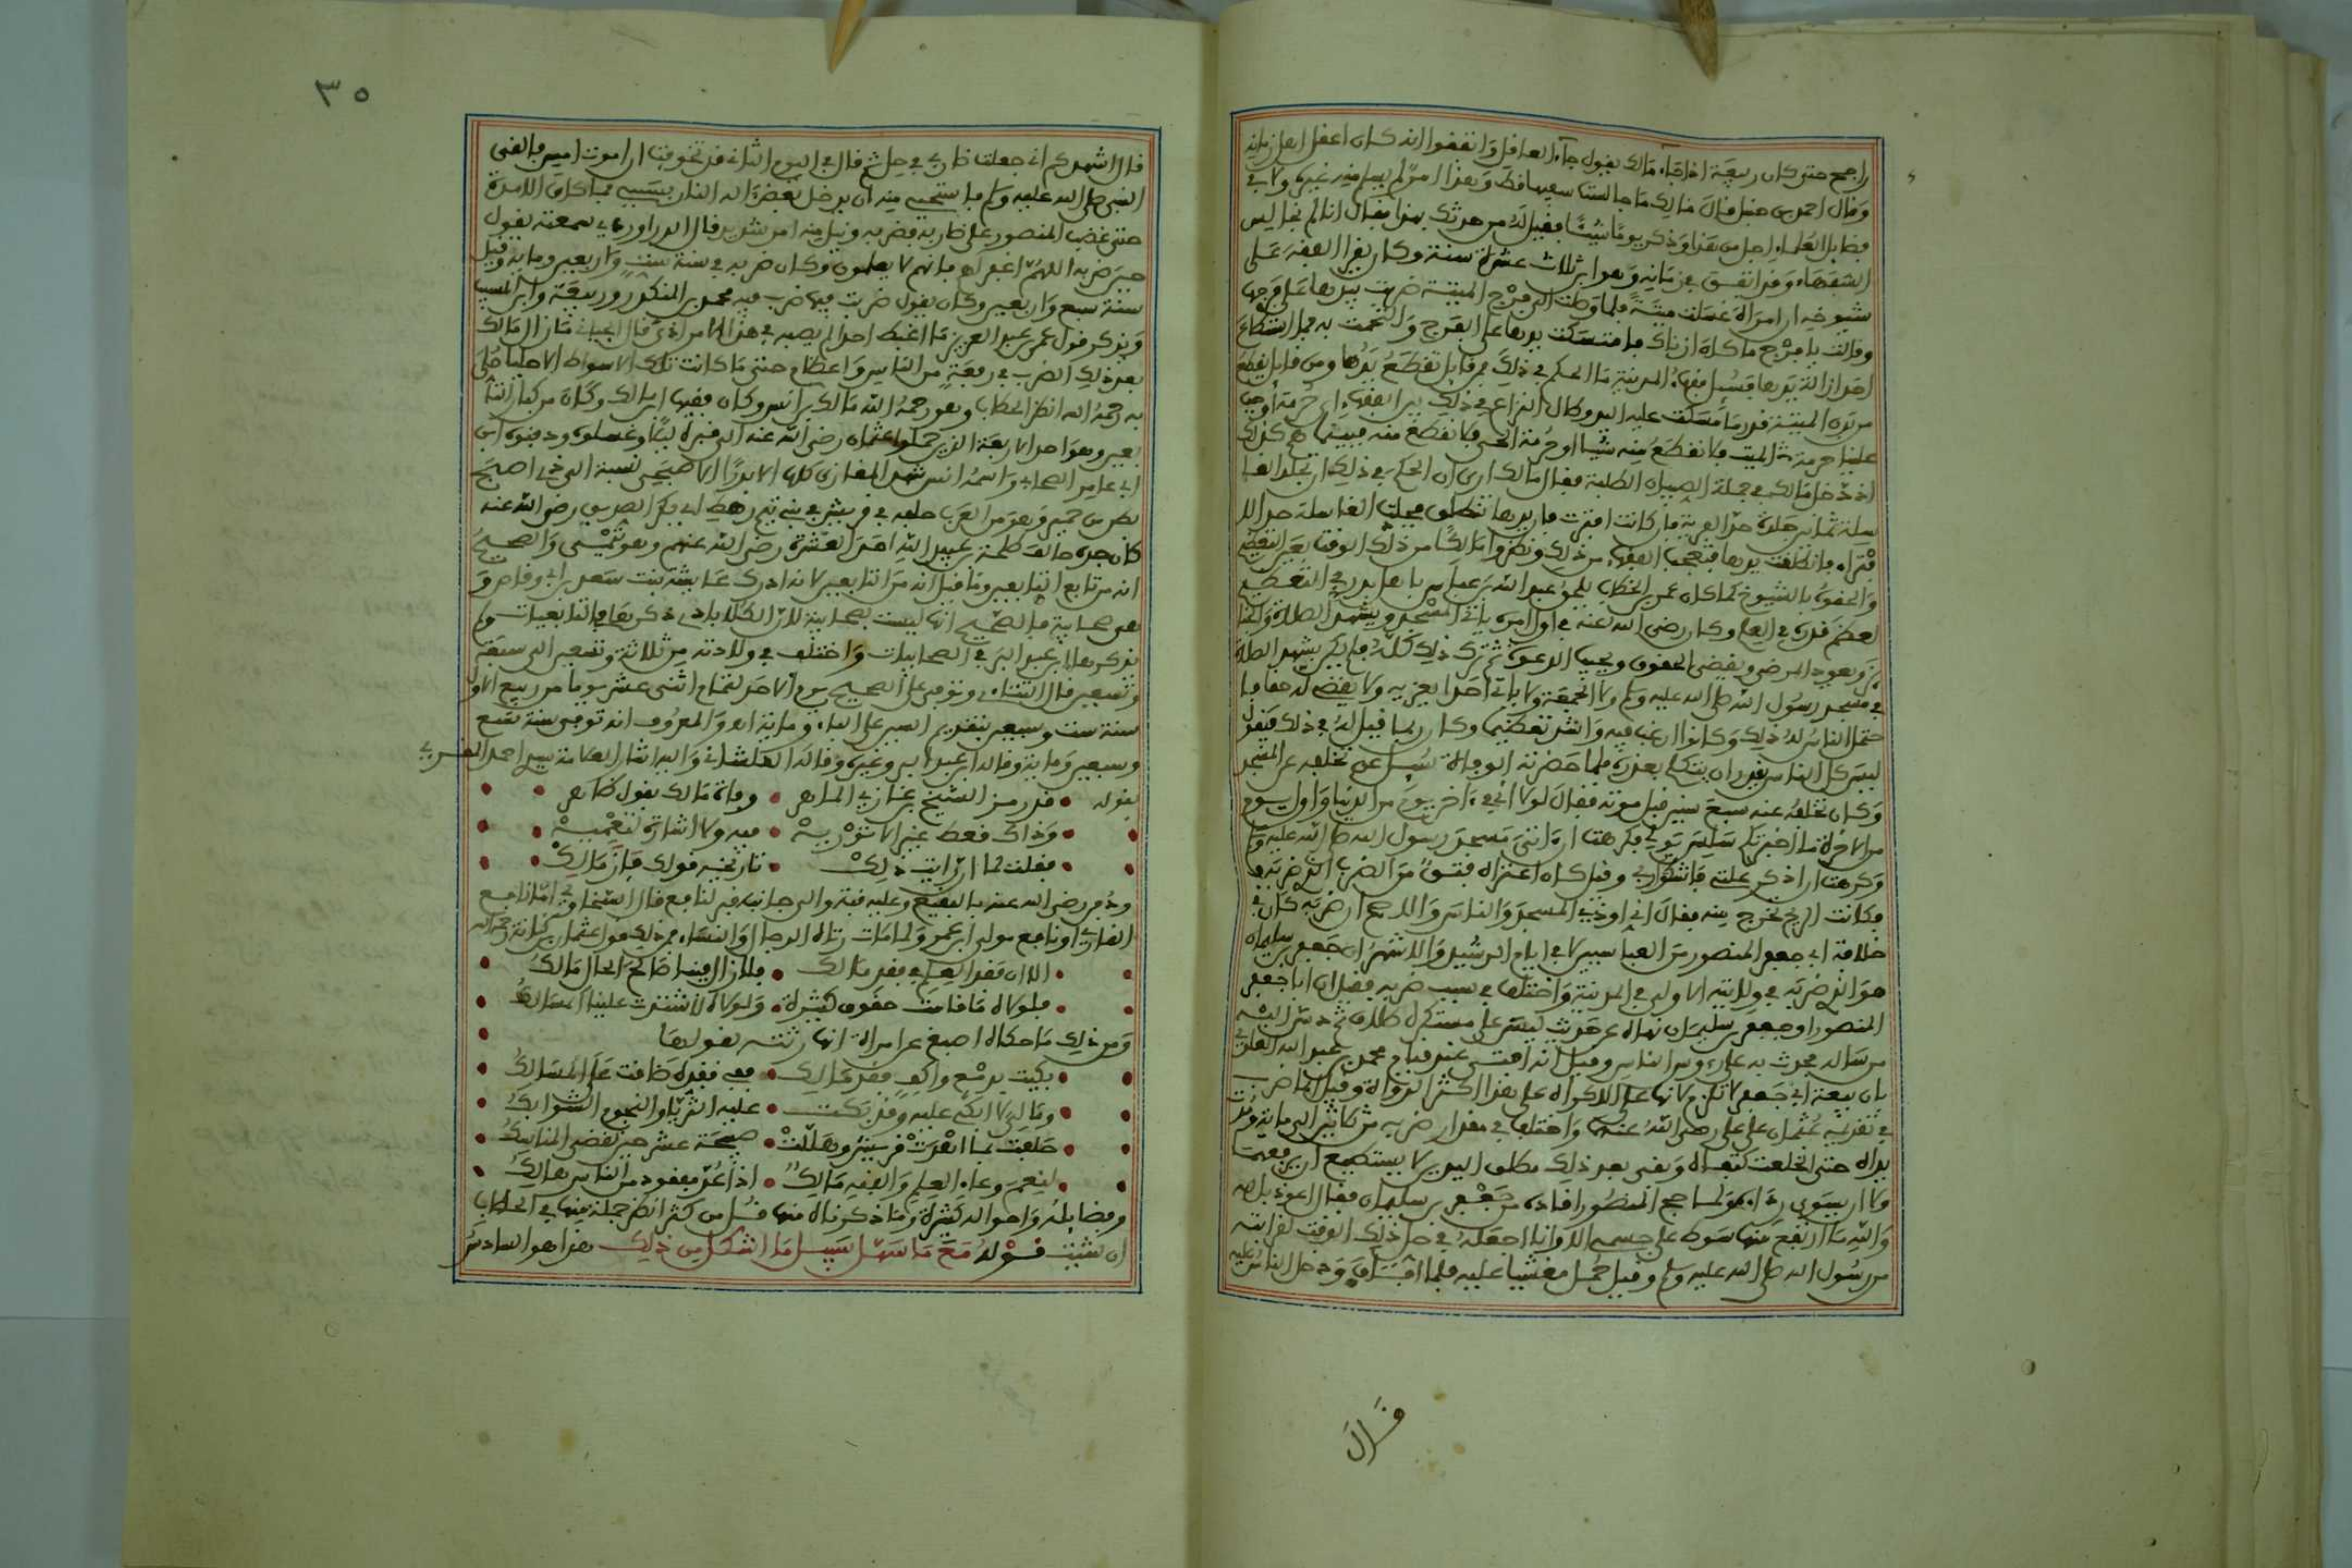 راجح حتى كان ربيعة اذا جاء مالك يقول جاء العاقل واتفقوا انه كان اعقل اهل زمانه
وقال احمد بن حنبل قال مالك ما جالست سفيها قط وهذا امر لم يسلم منه غيره ولا في
فضايل العلماء اجل من هذا وذكر يوما شيئا فقيل له من حدثك بهذا فقال انا لم نجالس
السفهاء وقد اتفق في زمانه وهو ابن ثلاث عشرة سنة وكان يقرا الفقه على
شيوخه ان امراة غسلت ميتة فلما وصلت الى فرج الميتة ضربت بيدها على فرجها
وقالت يا فرج ما كان ازناك فامتسكت يدها على الفرج والتحمت به فما استطاع
احد ازالة يدها فسئل فقهاء المدينة ما الحكم في ذلك فمن قايل تقطع يدها ومن قايل يقطع
من بدن الميتة قدر ما مسكت عليه اليد وطال النزاع في ذلك بين الفقهاء اي حرمة اوجب
علينا حرمة الميت فلا نقطع منه شيا او حرمة الحي فلا نقطع منه فبينما هم كذلك
اذ دخل مالك في جملة الصبيان الطلبة فقال مالك ارى ان الحكم في ذلك ان تجلد الغا
سلة ثمانين جلدة حد الفرية فان كانت افترت فان يدها تنطلق فجلدت الغاسلة حد الا
فتراء فانطلقت يدها فتعجب الفقهاء من ذلك ونظروا مالكا من ذلك الوقت بعين التعظيم
والحقوه بالشيوخ كما كان عمر بن الخطاب يلحق عبد الله بن عباس باهل بدر في التعظيم
لعظم قدره في العلم وكان رضى الله عنه في اول امره ياتي المسجد ويشهد الصلاة والجنا
ئز ويعود المرضى ويقضي الحقوق ويجيب الدعوة ثم ترك ذلك كله فلم يكن يشهد الصلاة
في مسجد رسول الله صلى الله عليه وسلم ولا الجمعة ولا ياتي احدا يعزيه ولا يقضي له حقا فا
حتمل الناس له ذلك وكانوا ارغب فيه واشد تعظيما وكان ربما قيل له في ذلك فيقول
ليس كل الناس يقدر ان يتكلم بعذره فلما حضرته الوفاة سئل عن تخلفه عن المسجد
وكان تخلفه عنه سبع سنين قبل موته فقال لولا اني في ءاخر يوم من الدنيا واول يوم
من الاخرة ما اخبرتكم سلس بولي فكرهت ان ءاتي مسجد رسول الله صلى الله عليه وسلم
وكرهت ان اذكر علتي فاشكو ربي وقيل كان اعتراه فتق من الضرب الذي ضربه
فكانت الريح تخرج منه فقال اني اوذي المسجد والناس والاصح ان ضربه كان في
خلافة ابي جعفر المنصور من العباسيين لا في ايام الرشيد والاشهر ان جعفر بن سليمان
هو الذي ضربه في ولايته الاولى في المدينة واختلف في سبب ضربه فقيل ان ابا جعفر
المنصور او جعفر بن سليمان نهاه عن حديث ليس على مستكره طلاق ثم دس اليه
من ساله فحدث به على رءوس الناس وقيل انه افتى عند قيام محمد بن عبد الله العلوي
بان بيعة ابي جعفر لا تلزم لانها على الاكراه على هذا اكثر الرواة وقيل انما ضرب
في تقديمه عثمان على علي رضي الله عنهما واختلف في مقدار ضربه من ثلاثين الى ماية ومدت
يداه حتى انخلعت كتفاه وبقي بعد ذلك مطلق اليدين لا يستطيع ان يرفعهما
ولا ان يسوي رداءه ولما حج المنصور اقاده من جعفر بن سليمان فقال اعوذ بالله
والله ما ارتفع منها سوط على جسمي الا وانا اجعله في حل ذلك الوقت لقرابته
من رسول الله صلى الله عليه وسلم وقيل حمل مغشيا عليه فلما افاق ودخل الناس عليه
قال
٣٥
قال اشهدكم اني جعلت ضاربي في حل ثم قال في اليوم الثاني قد تخوفت ان اموت امس فالقى
النبي صلى الله عليه وسلم فاستحيي منه ان يدخل بعض ءاله النار بسببي فما كان الا مدة
حتى غضب المنصور على ضاربه فضربه ونيل منه امر شديد قال الدراوردي سمعته يقول
حين ضربه اللهم اغفر لهم فانهم لا يعلمون وكان ضربه في سنة ست واربعين وماية وقيل
سنة سبع واربعين وكان يقول ضربت فيما ضرب فيه محمد بن المنكدر وربيعة وابن المسيب
ويذكر قول عمر بن عبد العزيز ما اغبط احدا لم يصبه في هذا الامر اذى قال الجياني ما زال مالك
بعد ذلك الضرب في رفعة من الناس واعظام حتى ما كانت تلك الاسواط الا حليا حلي
به رحمه الله انظر الحطاب وهو رحمه الله مالك بن انس وكان فقيها ابن مالك وكان من كبار التا
بعين وهو احد الاربعة الذين حملوا عثمان رضى الله عنه الى قبره ليلا وغسلوه ودفنوه ابن
ابي عامر الصحابي واسمه انس شهد المغازي كلها الا بدرا الاصبحي نسبة الى ذي اصبح
بطن من حمير وهو من العرب حلفه في قريش في بني تيم رهط ابي بكر الصديق رضي الله عنه
كان جده حالف طلحة بن عبيد الله احد العشرة رضي الله عنهم وهو تيمي والصحيح
انه من تابع التابعين وما قيل انه من التابعين لانه ادرك عايشة بنت سعد بن ابي وقاص و
هي صحابية فالصحيح انها ليست بصحابية لان الكلاباذي ذكرها في التابعيات ولم
يذكرها ابن عبد البر في الصحابيات واختلف في ولادته من ثلاثة وتسعين الى سبعة
وتسعين قال التتائي وتوفي على الصحيح يوم الاحد لتمام اثنى عشر يوما من ربيع الاول
سنة ست وسبعين بتقديم السين على الباء وماية اه والمعروف انه توفي سنة تسع
وسبعين وماية وقاله ابن عبد البر وغيره وقاله القلشاني واليه اشار العلامة سيدي احمد المقري
بقوله قد رمز الشيخ بن غازي الماهر وفاة مالك بقول ظاهر
وذاك فعط عبر الا توريه فيه ولا اشارة لتعميه
فقلت لما ان رايت ذلك تاريخه قولك فاز مالك
ودفن رضي الله عنه بالبقيع وعليه قبة والى جانبه قبر لنافع قال السخاوي اما نافع
القاري او نافع مولى ابن عمر ولما مات رثاه الرجال والنساء فمن ذلك قول عثمان بن كنانة رحمه الله
الا ان فقد العلم في فقد مالك فلا زال فينا صالح الحال مالك
فلولاه ما قامت حقوق كثيرة ولولاه لاشتدت علينا المسالك
ومن ذلك ما حكاه اصبغ عن امراة انها رثته بقولها
بكيت بدمع واكف فقد مالك ففي فقده ضاقت علي المسالك
ومالي لا ابكي عليه وقد بكت عليه الثريا والنجوم الشوابك
حلفت بما اهدت قريش وهللت صبيحة عشر حين تقضى المناسك
لنعم وعاء العلم والفقه مالك اذا عد مفقود من الناس هالك
وفضايله واحواله كثيرة وما ذكرناه منها قل من كثر انظر جملة منها في الحطاب
ان شيت قوله مع ما سهل سبيل ما اشكل من ذلك هذا هو السادس